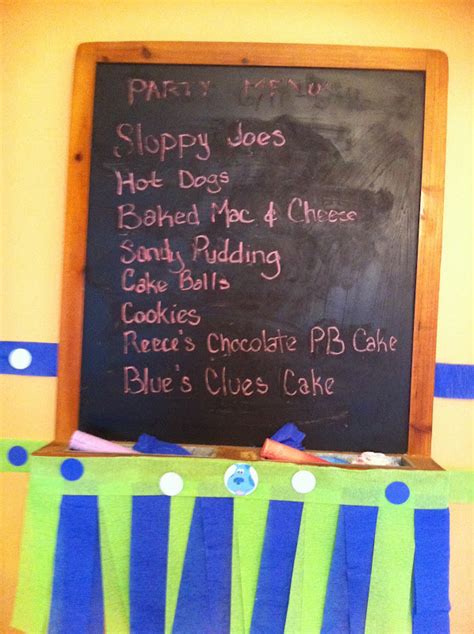 PARTY MENU
Sloppy Joes
Hot Dogs
Baked Mac & Cheese
Sandy Pudding
Cake Balls
Cookies
Reece's Chocolate PB Cake
Blue's Clues Cake